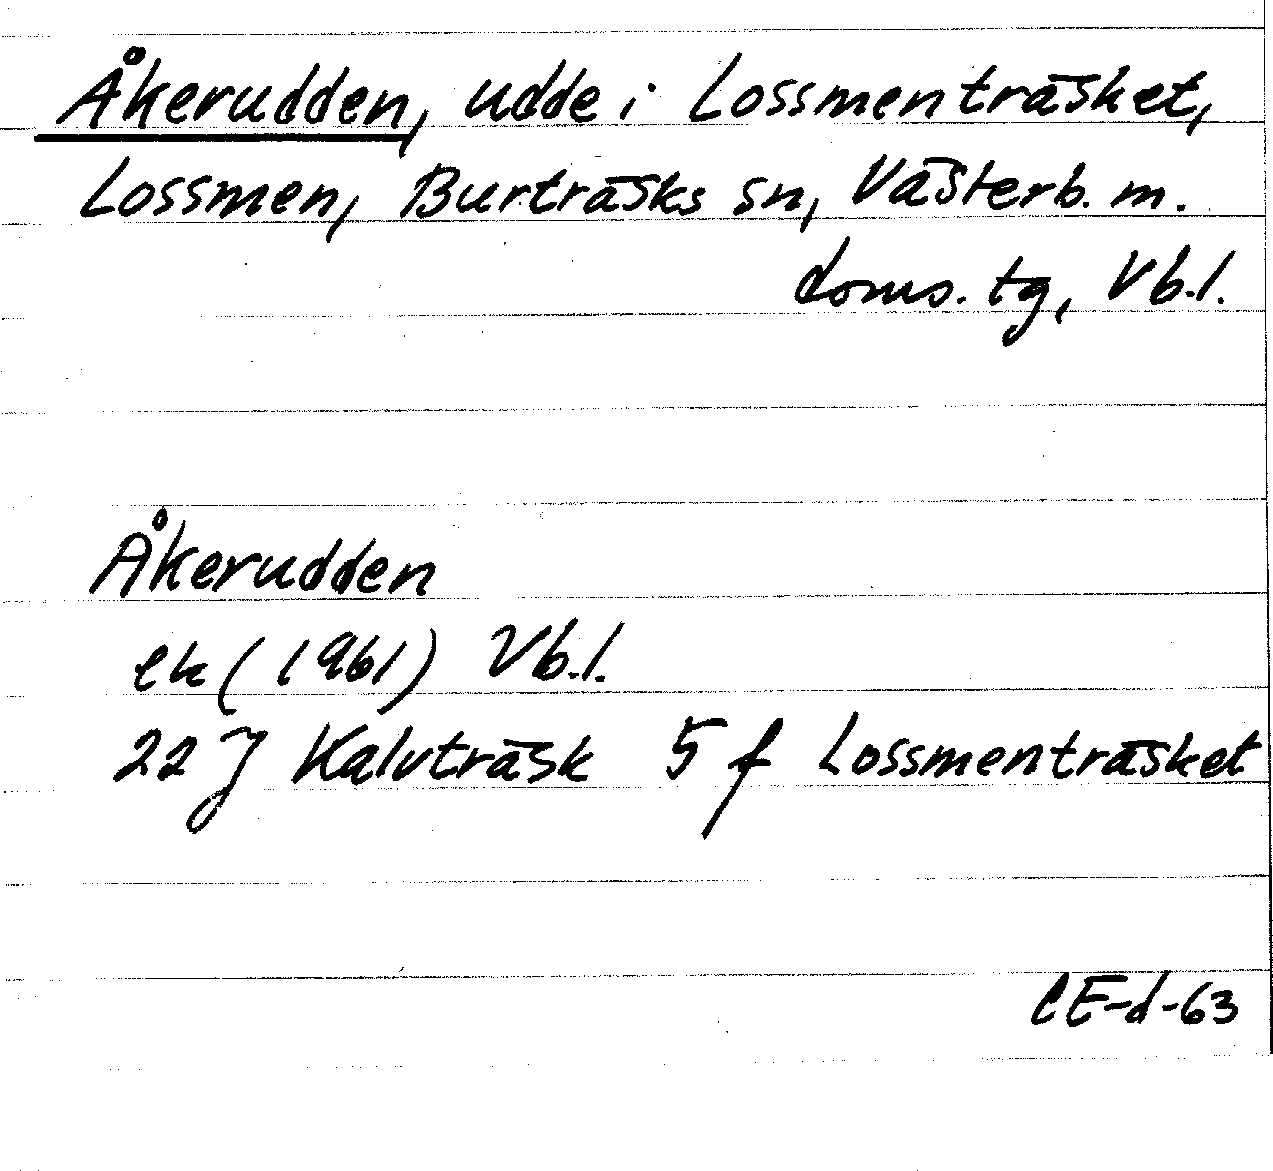 Åkerudden, udde i Lossmenträsket,
Lossmen, Burträsks sn, Västerb. m.
doms. tg, Vb.l.
Åkerudden
ek (1961) Vb.l.
22 J Kalvträsk 5 f Lossmenträsket
CE-d-63